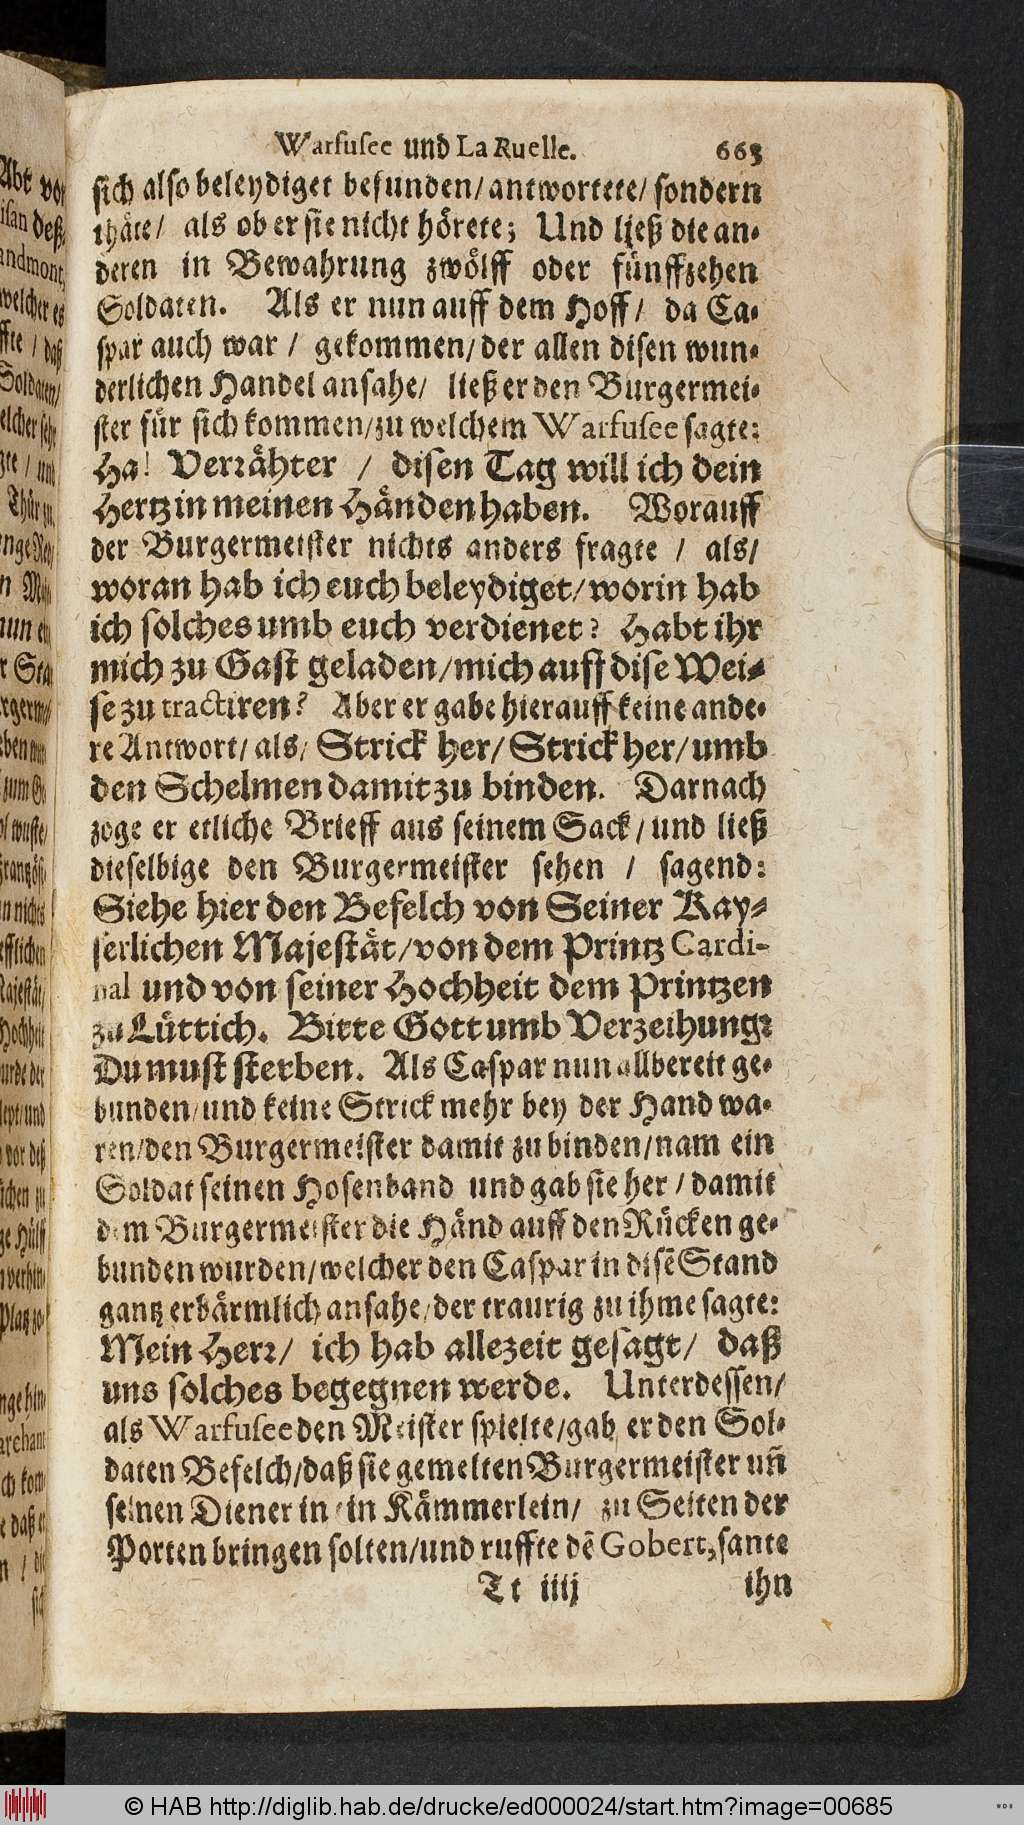 Warfusee und La Ruelle. 663
sich also beleydiget befunden/ antwortete/ sondern
thäte/ als ob er sie nicht hörete; Und ließ die an-
deren in Bewahrung zwölff oder fünffzehen
Soldaten. Als er nun auff dem Hoff/ da Ca-
spar auch war / gekommen/ der allen disen wun-
derlichen Handel ansahe/ ließ er den Burgermei-
ster für sich kommen/ zu welchem Warfusee sagte:
Ha! Verrähter / disen Tag will ich dein
Hertz in meinen Händen haben. Worauff
der Burgermeister nichts anders fragte / als/
woran hab ich euch beleydiget/ worin hab
ich solches umb euch verdienet? Habt ihr
mich zu Gast geladen/ mich auff dise Wei-
se zu tractiren? Aber er gabe hierauff keine ande-
re Antwort/ als/ Strick her/ Strick her/ umb
den Schelmen damit zu binden. Darnach
zoge er etliche Brieff aus seinem Sack/ und ließ
dieselbige den Burgermeister sehen / sagend:
Siehe hier den Befelch von Seiner Kay-
serlichen Majestät/ von dem Printz Cardi-
nal und von seiner Hochheit dem Printzen
zu Lüttich. Bitte Gott umb Verzeihung:
Du must sterben. Als Caspar nun allbereit ge-
bunden/ und keine Strick mehr bey der Hand wa-
ren/ den Burgermeister damit zu binden/ nam ein
Soldat seinen Hosenband und gab sie her / damit
dem Burgermeister die Händ auff den Rücken ge-
bunden wurden/ welcher den Caspar in disē Stand
gantz erbärmlich ansahe/ der traurig zu ihme sagte:
Mein Herr/ ich hab allezeit gesagt/ daß
uns solches begegnen werde. Unterdessen/
als Warfusee den Meister spielte/ gab er den Sol-
daten Befelch/ daß sie gemelten Burgermeister un̄
seinen Diener in ein Kämmerlein/ zu Seiten der
Porten bringen solten/ und ruffte dē Gobert, sante
Tt iiij ihn
© HAB http://diglib.hab.de/drucke/ed000024/start.htm?image=00685